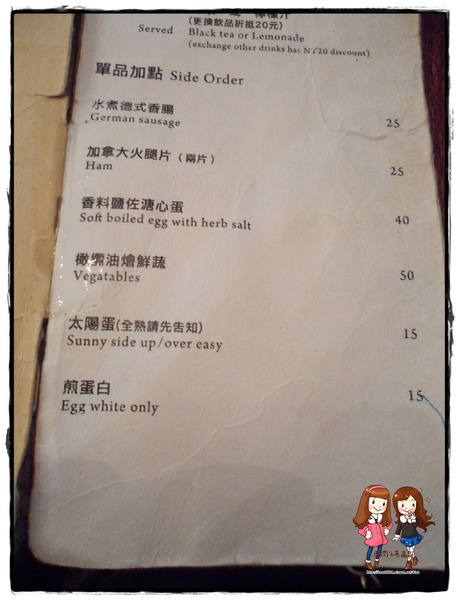 檸檬汁
(更換飲品折抵20元)
Served Black tea or Lemonade
(exchange other drinks has NT20 discount)
單品加點 Side Order
水煮德式香腸
German sausage 25
加拿大火腿片（兩片）
Ham 25
香料鹽佐溏心蛋
Soft boiled egg with herb salt 40
橄欖油燴鮮蔬
Vegatables 50
太陽蛋(全熟請先告知)
Sunny side up/over easy 15
煎蛋白
Egg white only 15